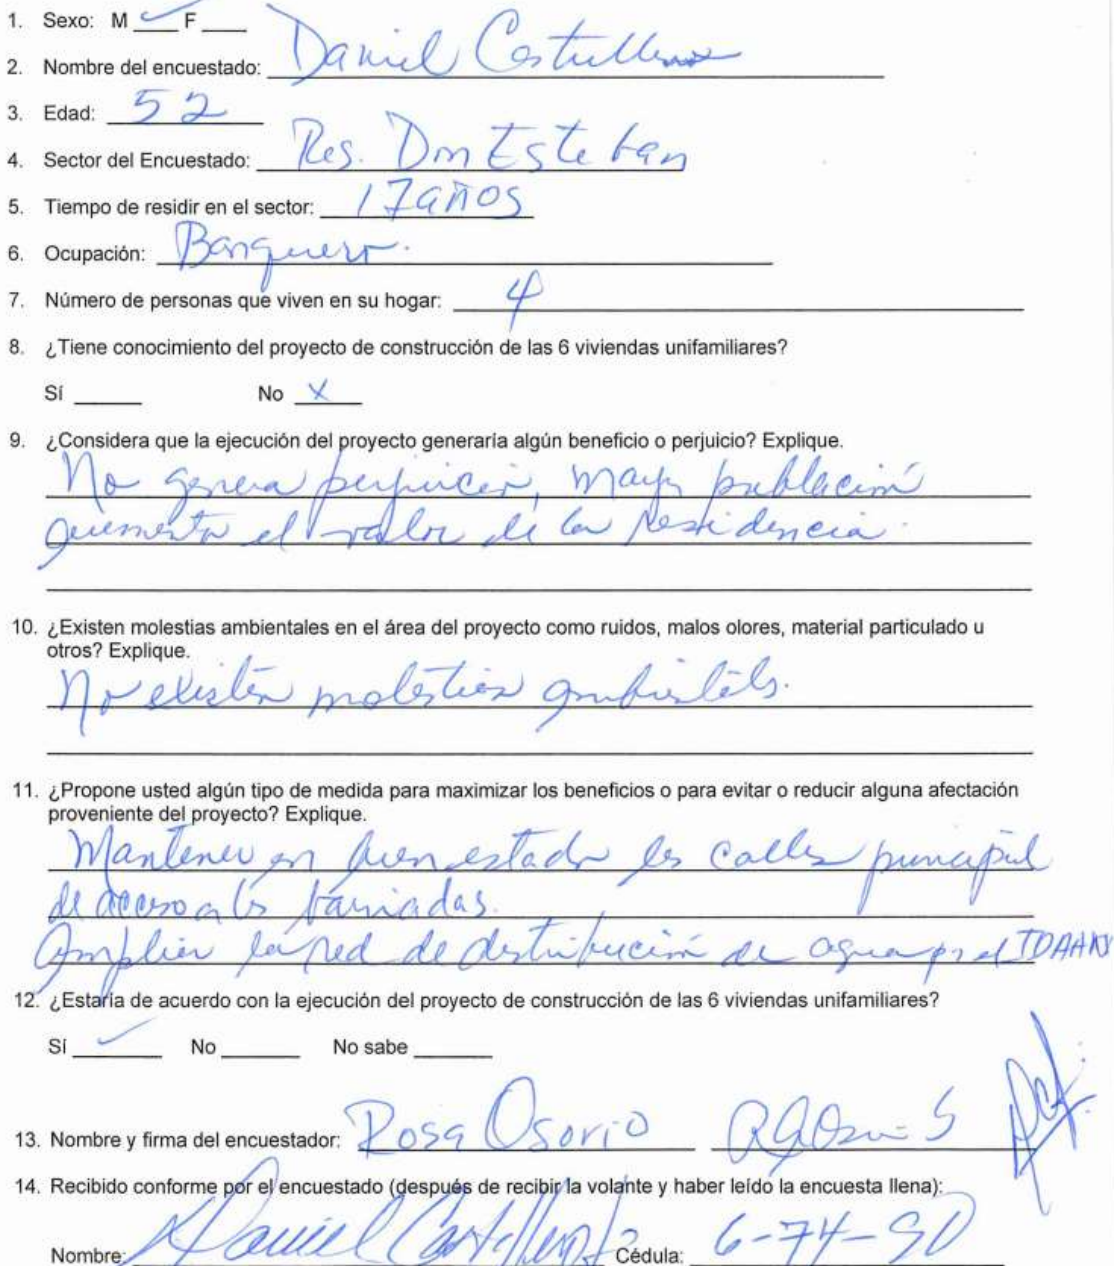 1. Sexo: M ✓ F ____
2. Nombre del encuestado: Daniel Castillero
3. Edad: 52
4. Sector del Encuestado: Res. Don Esteban
5. Tiempo de residir en el sector: 17 años
6. Ocupación: Banquero.
7. Número de personas que viven en su hogar: 4
8. ¿Tiene conocimiento del proyecto de construcción de las 6 viviendas unifamiliares?
Sí ____ No X
9. ¿Considera que la ejecución del proyecto generaría algún beneficio o perjuicio? Explique.
No genera perjuicio, mayor población
aumenta el valor de la residencia.
10. ¿Existen molestias ambientales en el área del proyecto como ruidos, malos olores, material particulado u
otros? Explique.
No existen molestias ambientales.
11. ¿Propone usted algún tipo de medida para maximizar los beneficios o para evitar o reducir alguna afectación
proveniente del proyecto? Explique.
Mantener en buen estado las calles principal
de acceso a las barriadas.
Ampliar la red de distribución de agua por el IDAAN
12. ¿Estaría de acuerdo con la ejecución del proyecto de construcción de las 6 viviendas unifamiliares?
Sí ✓ No ____ No sabe ____
13. Nombre y firma del encuestador: Rosa Osorio
14. Recibido conforme por el encuestado (después de recibir la volante y haber leído la encuesta llena):
Nombre: Daniel Castillero Cédula: 6-74-90